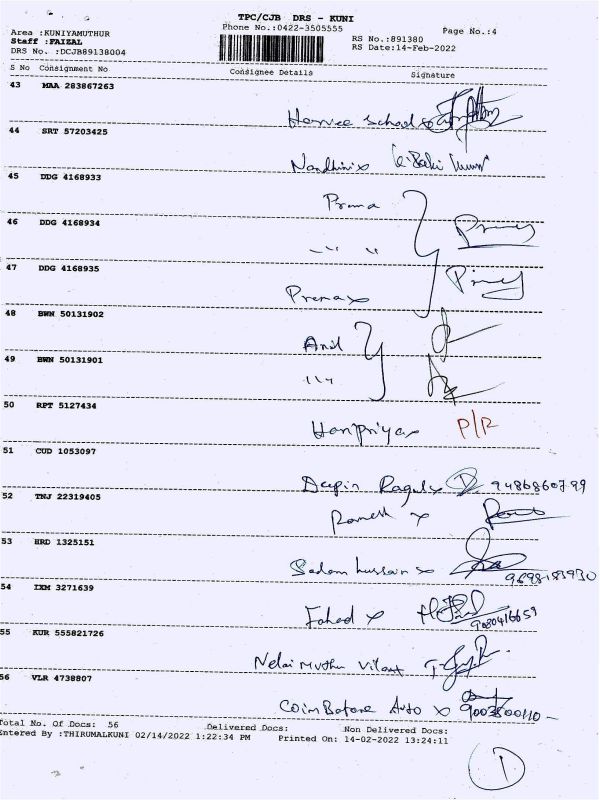 TPC/CJB DRS - KUNI
Phone No.:0422-3505555
Page No.:4
Area :KUNIYAMUTHUR
Staff :FAIZAL
DRS No. :DCJB89138004
RS No.:891380
RS Date:14-Feb-2022
S No Consignment No Consignee Details Signature
43 MAA 283867263
Harvee School x
44 SRT 57203425
Nandhini x
45 DDG 4168933
Prema
46 DDG 4168934
" "
47 DDG 4168935
Prema x
48 BWN 50131902
Anil
49 BWN 50131901
" "
50 RPT 5127434
Haripriya x P/R
51 CUD 1053097
Ragul x 9486860799
52 TNJ 22319405
Ramesh x
53 HRD 1325151
Sadam hussain x 9698183930
54 IXM 3271639
Fahad x 9080416659
55 KUR 555821726
Nelai Muthu Vilas x
56 VLR 4738807
Coimbatore Auto x 9003500110 -
Total No. Of Docs: 56 Delivered Docs: Non Delivered Docs:
Entered By :THIRUMALKUNI 02/14/2022 1:22:34 PM Printed On: 14-02-2022 13:24:11
1